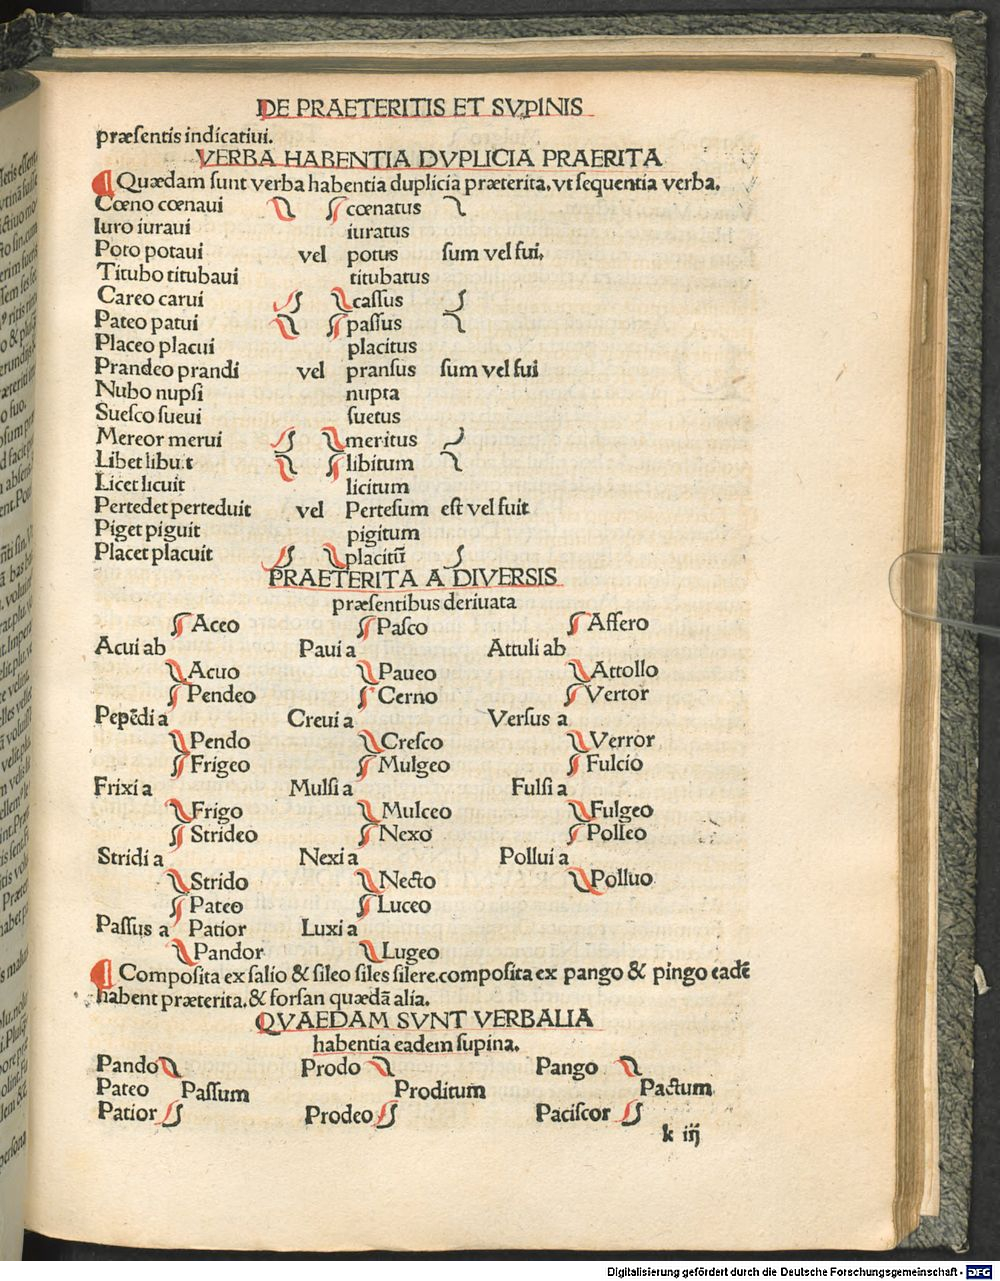 DE PRAETERITIS ET SVPINIS
præſentis indicatiui.
VERBA HABENTIA DVPLICIA PRAERITA
Quædam ſunt verba habentia duplicia præterita, vt ſequentia verba.
Cœno cœnaui cœnatus
Iuro iuraui iuratus
Poto potaui vel potus ſum vel fui,
Titubo titubaui titubatus
Careo carui caſſus
Pateo patui paſſus
Placeo placui placitus
Prandeo prandi vel pranſus ſum vel fui
Nubo nupſi nupta
Sueſco ſueui ſuetus
Mereor merui meritus
Libet libuit libitum
Licet licuit licitum
Pertedet perteduit vel Perteſum eſt vel fuit
Piget piguit pigitum
Placet placuit placitū
PRAETERITA A DIVERSIS
præſentibus deriuata
Aceo Paſco Affero
Acui ab Paui a Attuli ab
Acuo Paueo Attollo
Pendeo Cerno Vertor
Pepēdi a Creui a Verſus a
Pendo Creſco Verror
Frigeo Mulgeo Fulcio
Frixi a Mulſi a Fulſi a
Frigo Mulceo Fulgeo
Strideo Nexo Polleo
Stridi a Nexi a Pollui a
Strido Necto Polluo
Pateo Luceo
Paſſus a Patior Luxi a
Pandor Lugeo
Compoſita ex ſalio & ſileo ſiles ſilere.compoſita ex pango & pingo eadē
habent præterita.& forſan quædā alia.
QVAEDAM SVNT VERBALIA
habentia eadem ſupina.
Pando Prodo Pango
Pateo Paſſum Proditum Pactum
Patior Prodeo Paciſcor
k iij
Digitalisierung gefördert durch die Deutsche Forschungsgemeinschaft - DFG